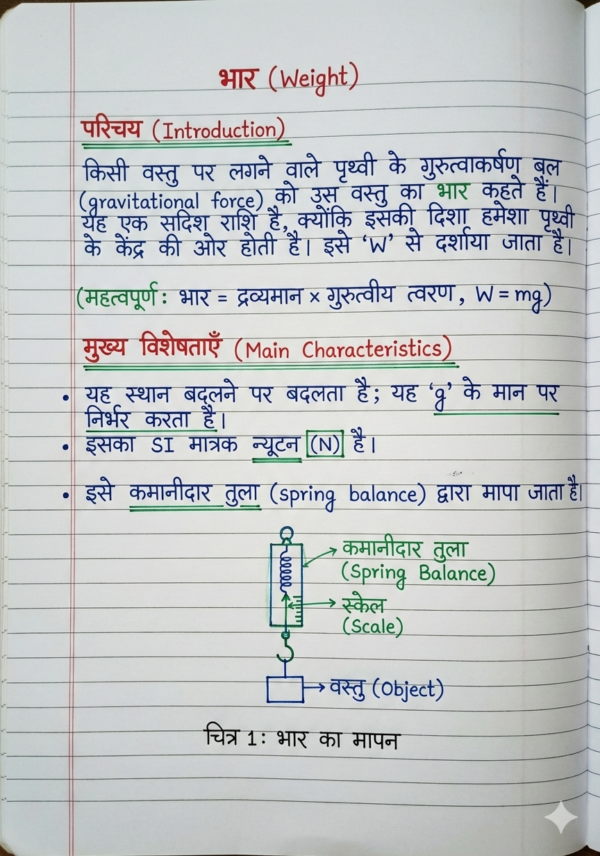 भार (Weight)
परिचय (Introduction)
किसी वस्तु पर लगने वाले पृथ्वी के गुरुत्वाकर्षण बल
(gravitational force) को उस वस्तु का भार कहते हैं।
यह एक सदिश राशि है, क्योंकि इसकी दिशा हमेशा पृथ्वी
के केंद्र की ओर होती है। इसे 'W' से दर्शाया जाता है।
(महत्वपूर्ण: भार = द्रव्यमान × गुरुत्वीय त्वरण, W = mg)
मुख्य विशेषताएँ (Main Characteristics)
• यह स्थान बदलने पर बदलता है; यह 'g' के मान पर
निर्भर करता है।
• इसका SI मात्रक न्यूटन (N) है।
• इसे कमानीदार तुला (spring balance) द्वारा मापा जाता है।
कमानीदार तुला
(Spring Balance)
स्केल
(Scale)
वस्तु (Object)
चित्र 1: भार का मापन